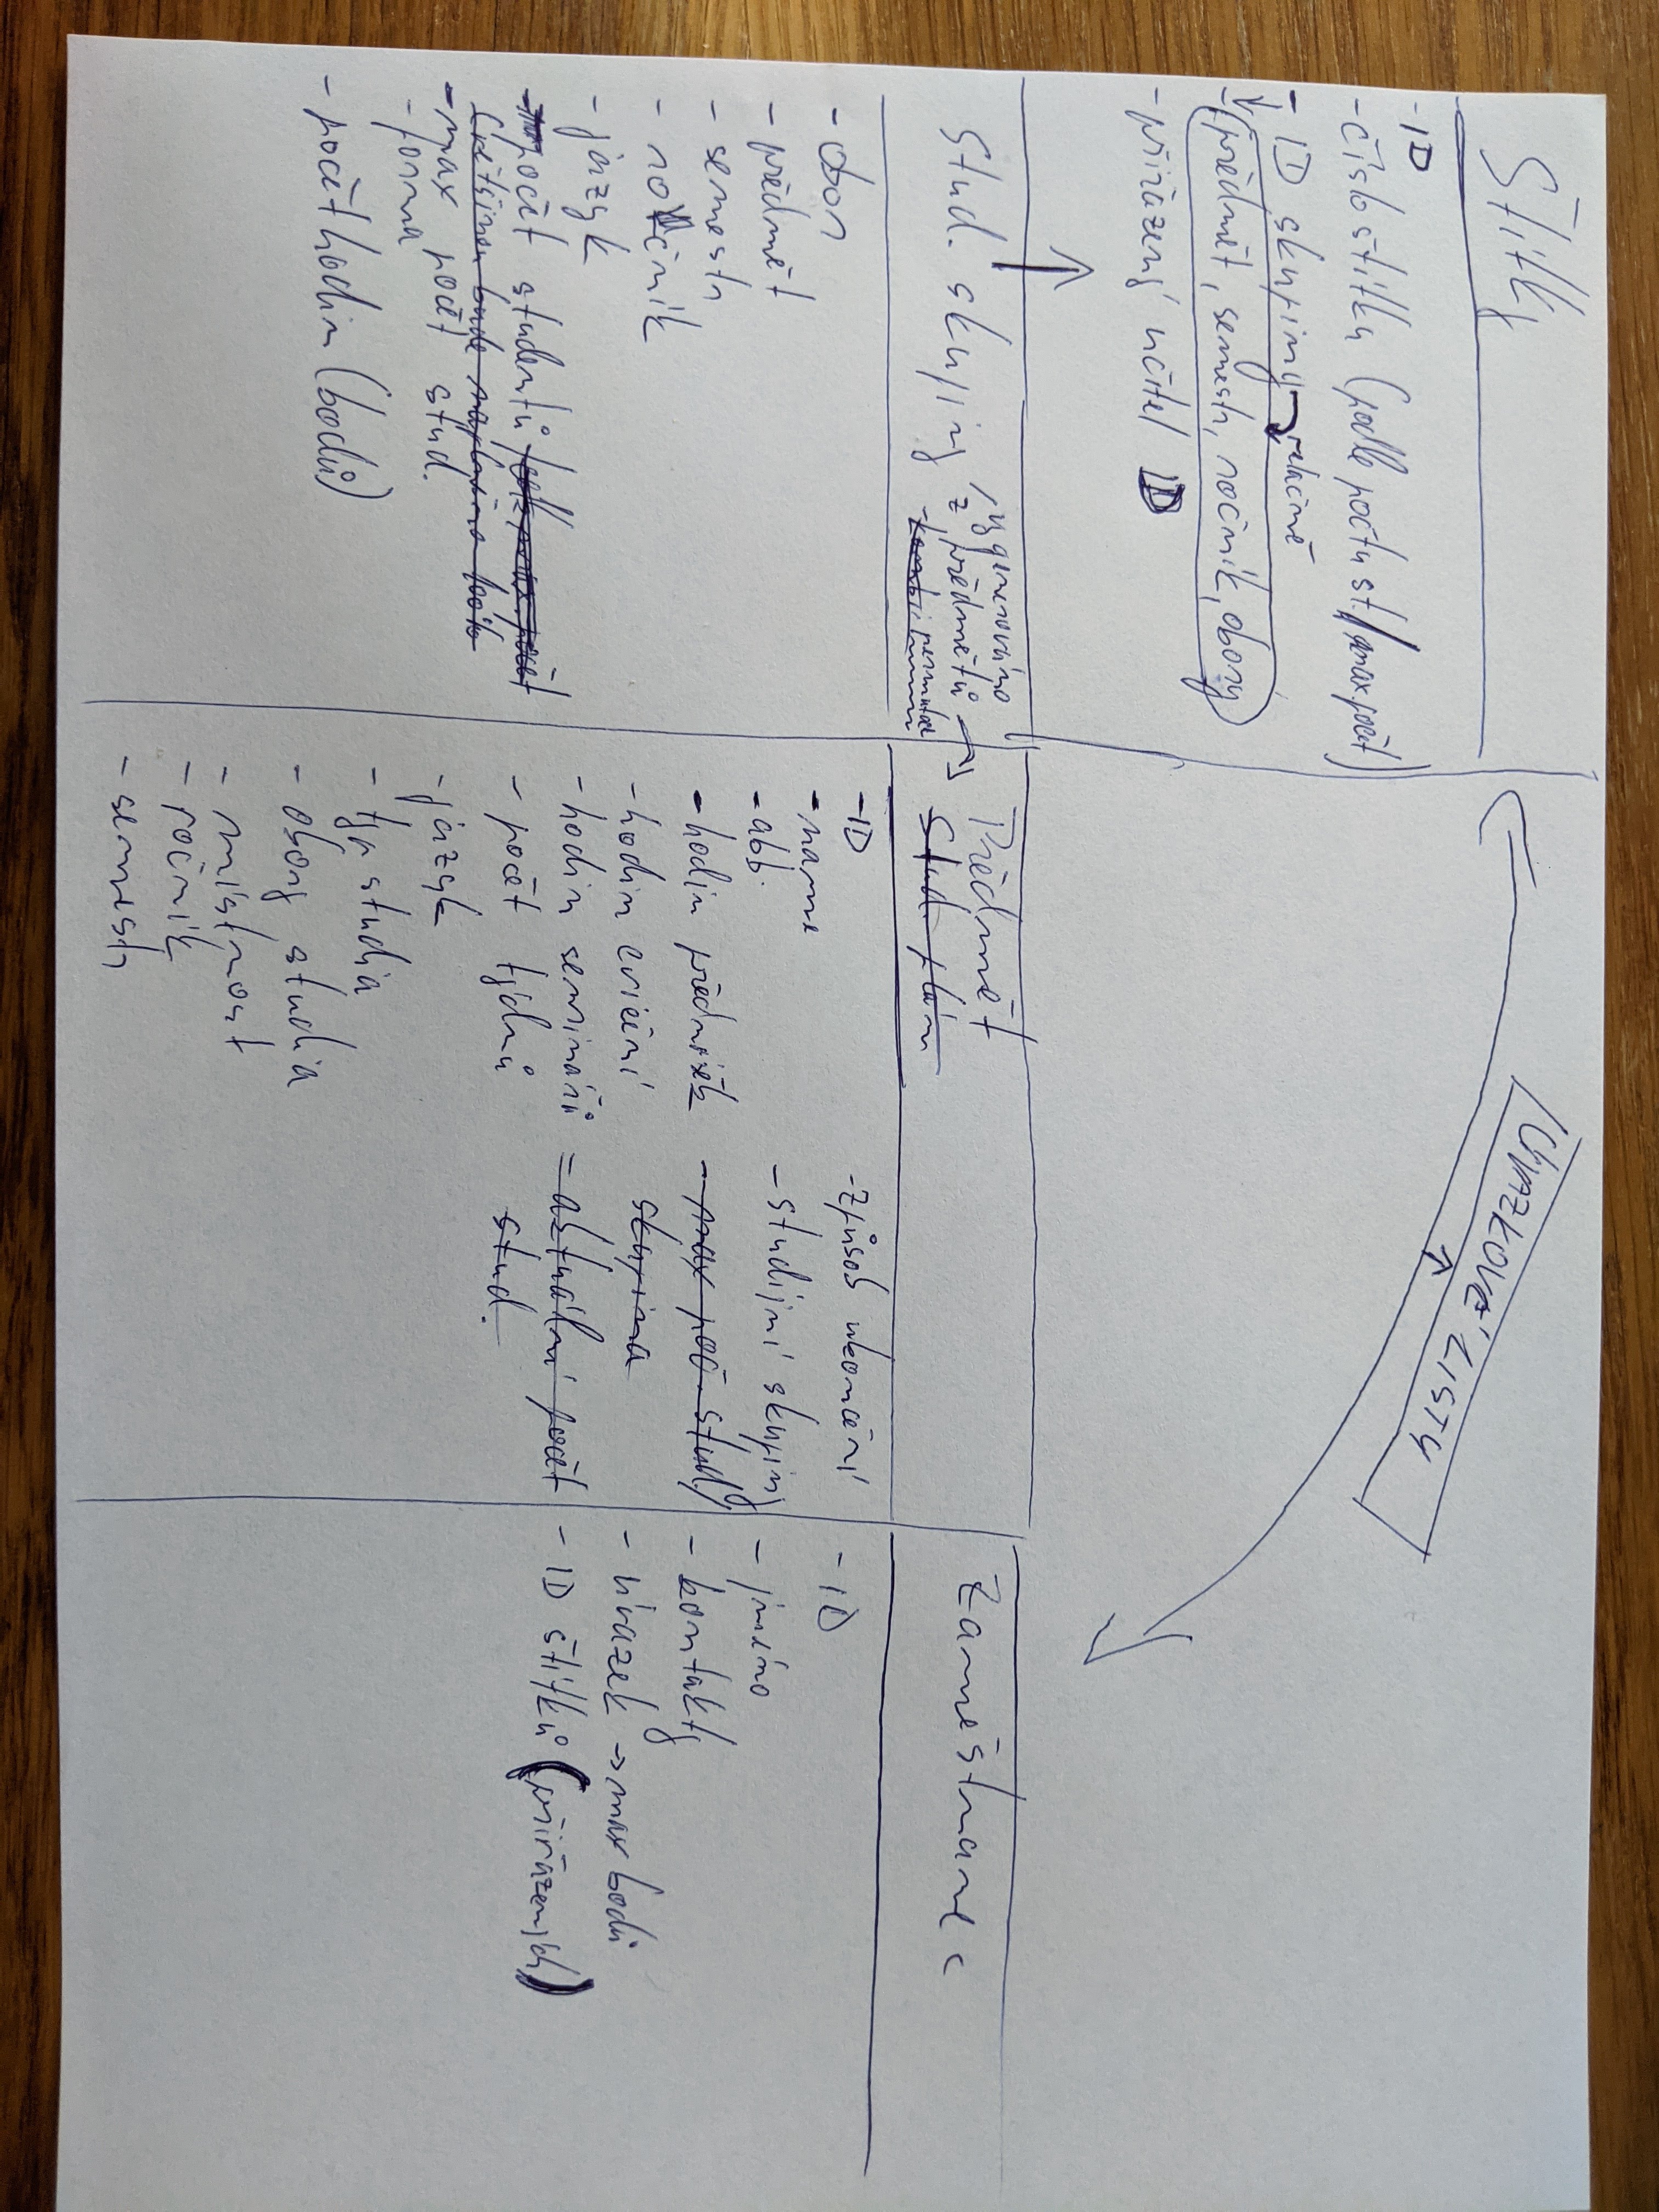 Štítky
-ID
-číslo štítku (podle počtu st./max počet)
- ID skupiny relačně
předmět, semestr, ročník, obory
-přiřazený učitel ID
ÚVAZKOVÉ LISTY
Stud. skupiny
vygenerováno
z předmětů
- obor
-předmět
- semestr
- ročník
- jazyk
počet studentů
- max počet stud.
- forma
- počet hodin (bodů)
Předmět
Stud. plán
-ID
-name
-abb.
-hodin přednášek
-hodin cvičení
-hodin seminářů
- počet týdnů
-jazyk
- typ studia
- obory studia
- místnost
- ročník
- semestr
-způsob ukončení
-studijní skupiny
- max poč. stud/
skupina
= aktuální počet
stud.
Zaměstnanec
-ID
- jméno
- kontakty
- úvazek → max bodů
- ID štítků (přiřazených)